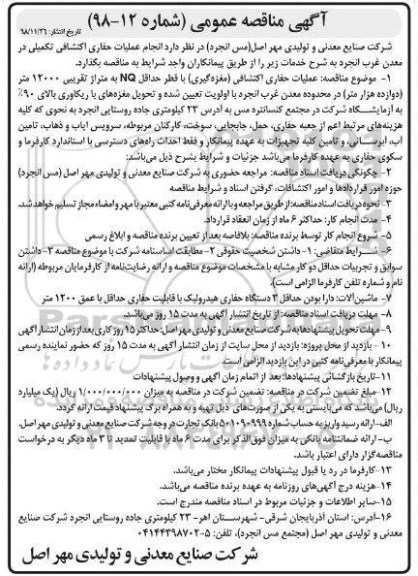 آگهی مناقصه عمومی (شماره ۱۲-۹۸)
تاریخ انتشار: ۹۸/۱۱/۲۶
شرکت صنایع معدنی و تولیدی مهر اصل(مس انجرد) در نظر دارد انجام عملیات حفاری اکتشافی تکمیلی در
معدن غرب انجرد به شرح خدمات زیر را از طریق پیمانکاران واجد شرایط به مناقصه بگذارد.
۱- موضوع مناقصه: عملیات حفاری اکتشافی (مغزه‌گیری) با قطر حداقل NQ به متراژ تقریبی ۱۲۰۰۰ متر
(دوازده هزار متر) در محدوده معدن غرب انجرد با اولویت تعیین شده و تحویل مغزه‌های با ریکاوری بالای ۹۰٪
به آزمایشگاه شرکت در مجتمع کنسانتره مس به آدرس ۲۳ کیلومتری جاده روستایی انجرد به نحوی که کلیه
هزینه‌های مرتبط اعم از جعبه حفاری، حمل، جابجایی، سوخت، کارکنان مربوطه، سرویس ایاب و ذهاب، تامین
آب، آبرسانی، و تامین کلیه تجهیزات به عهده پیمانکار و فقط احداث راه‌های دسترسی با استاندارد کارفرما و
سکوی حفاری به عهده کارفرما می‌باشد جزئیات و شرایط بشرح ذیل می‌باشد:
۲- چگونگی دریافت اسناد مناقصه: مراجعه حضوری به شرکت صنایع معدنی و تولیدی مهر اصل (مس انجرد)
حوزه امور قراردادها و امور اکتشافات، گرفتن اسناد و شرایط مناقصه
۳- نحوه دریافت اسناد مناقصه: از طریق مراجعه و با ارائه معرفی‌نامه کتبی معتبر با مهر و امضاء مجاز تسلیم خواهد شد.
۴- مدت انجام کار: حداکثر ۶ ماه از زمان انعقاد قرارداد.
۵- شروع انجام کار توسط برنده مناقصه: بلافاصله بعد از تعیین برنده مناقصه و ابلاغ رسمی
۶- شرایط متقاضی: ۱- داشتن شخصیت حقوقی ۲- مطابقت اساسنامه شرکت با موضوع مناقصه ۳- داشتن
سوابق و تجربیات حداقل دو کار مشابه با مشخصات موضوع مناقصه و ارائه رضایت‌نامه از کارفرمایان مربوطه (ارائه
نام و شماره تلفن کارفرما الزامی است).
۷- ماشین‌آلات: دارا بودن حداقل ۳ دستگاه حفاری هیدرولیک با قابلیت حفاری حداقل با عمق ۱۲۰۰ متر
۸- مهلت دریافت اسناد مناقصه: از تاریخ انتشار آگهی به مدت ۱۵ روز می‌باشد.
۹- مهلت تحویل پیشنهادها به شرکت صنایع معدنی و تولیدی مهر اصل: حداکثر ۱۵ روز کاری بعد از زمان انتشار آگهی
۱۰- بازدید از محل پروژه: بازدید از محل سایت از زمان انتشار آگهی به مدت ۱۵ روز که حضور نماینده رسمی
پیمانکار با معرفی‌نامه کتبی در این بازدید الزامی است.
۱۱- تاریخ بازگشائی پیشنهادها: بعد از اتمام زمان آگهی و وصول پیشنهادات
۱۲- مبلغ تضمین شرکت در مناقصه: تضمین شرکت در مناقصه به میزان ۱/۰۰۰/۰۰۰/۰۰۰ ریال (یک میلیارد
ریال) می‌باشد که می‌بایستی به یکی از صورت‌های ذیل تهیه و به همراه برگ پیشنهاد قیمت ارائه گردد.
الف- ارائه رسید واریز به حساب شماره ۵۰۱۰۹۰۹۹۹ بانک تجارت در وجه شرکت صنایع معدنی و تولیدی مهر اصل.
ب- ارائه ضمانتنامه بانکی به میزان فوق الذکر برای مدت ۶ ماه با قابلیت تمدید تا ۳ ماه دیگر به درخواست
مناقصه‌گزار دارای اعتبار باشد.
۱۳- کارفرما در رد یا قبول پیشنهادات پیمانکار مختار می‌باشد.
۱۴- هزینه درج آگهی‌های روزنامه به عهده برنده مناقصه می‌باشد.
۱۵- سایر اطلاعات و جزئیات مربوط در اسناد مناقصه مندرج است.
۱۶- آدرس: استان آذربایجان شرقی- شهرستان اهر- ۲۳ کیلومتری جاده روستایی انجرد شرکت صنایع
معدنی و تولیدی مهر اصل (مجتمع مس انجرد)، تلفن: ۵-۰۴۱۴۴۳۹۸۷۰۲
شرکت صنایع معدنی و تولیدی مهر اصل